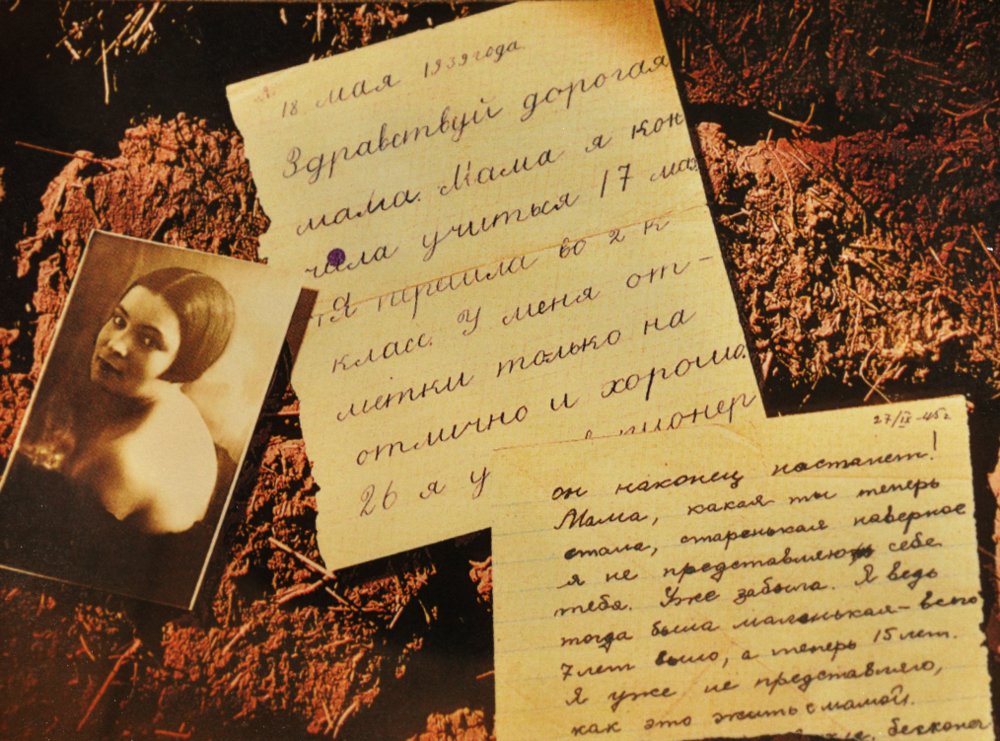 18 мая 1939 года.
Здравствуй дорогая
мама. Мама я кон
чила учиться 17 мая
Я перешла во 2 к
класс. У меня от-
метки только на
отлично и хорошо.
26 я у пионер
27/IX-45 г.
он наконец настанет!
Мама, какая ты теперь
стала, старенькая наверное
я не представляю себе
тебя. Уже забыла. Я ведь
тогда была маленькая - всего
7 лет было, а теперь 15 лет.
Я уже не представляю,
как это жить с мамой.
бесконеч